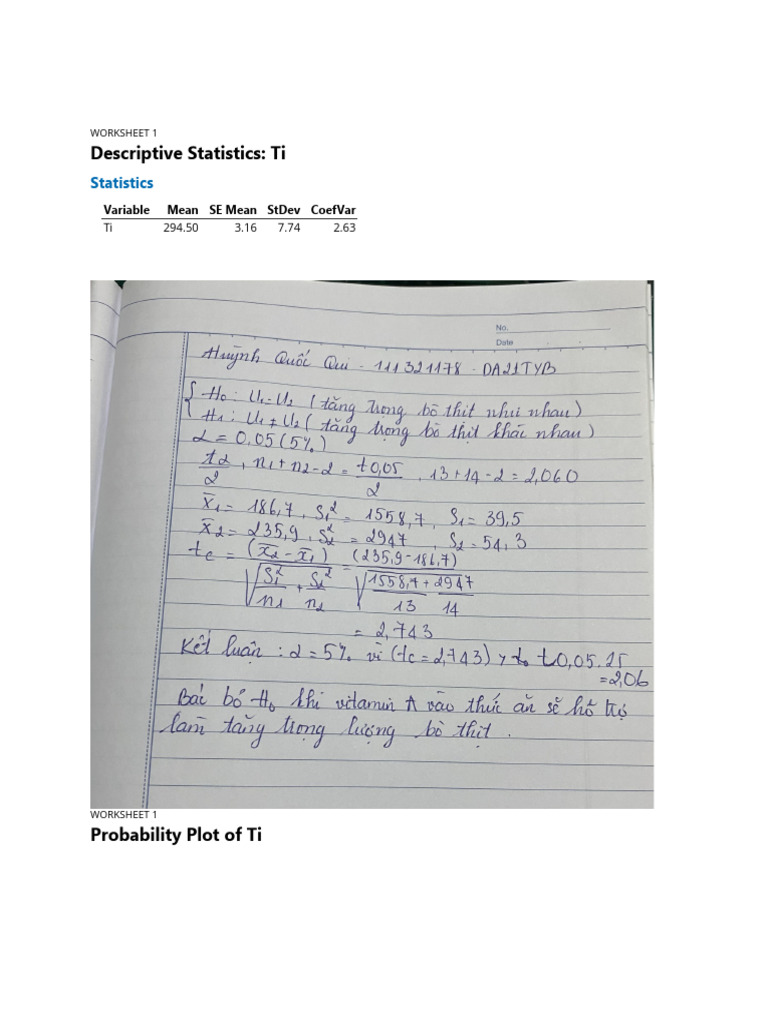 WORKSHEET 1
Descriptive Statistics: Ti
Statistics
Variable Mean SE Mean StDev CoefVar
Ti 294.50 3.16 7.74 2.63
No.
Date
Huỳnh Quốc Qui - 111321178 - DA21TYB
{ H₀ : U₁=U₂ ( tăng trọng bò thịt như nhau )
H₁ : U₁ ≠ U₂ ( tăng trọng bò thịt khác nhau )
α = 0,05 (5%)
tα/2 , n₁ + n₂ - 2 = t0,05/2 , 13 + 14 - 2 = 2,060
x̄₁ = 186,7 , S₁² = 1558,7 , S₁ = 39,5
x̄₂ = 235,9 , S₂² = 2947 , S₂ = 54,3
tc = (x̄₂ - x̄₁) / √(S₁²/n₁ + S₂²/n₂) = (235,9 - 186,7) / √(1558,7/13 + 2947/14)
= 2,743
Kết luận : α = 5% vì (tc = 2,743) > t0,05.25
= 2,06
Bác bỏ H₀ khi vitamin A vào thức ăn sẽ hỗ trợ
làm tăng trọng lượng bò thịt .
WORKSHEET 1
Probability Plot of Ti